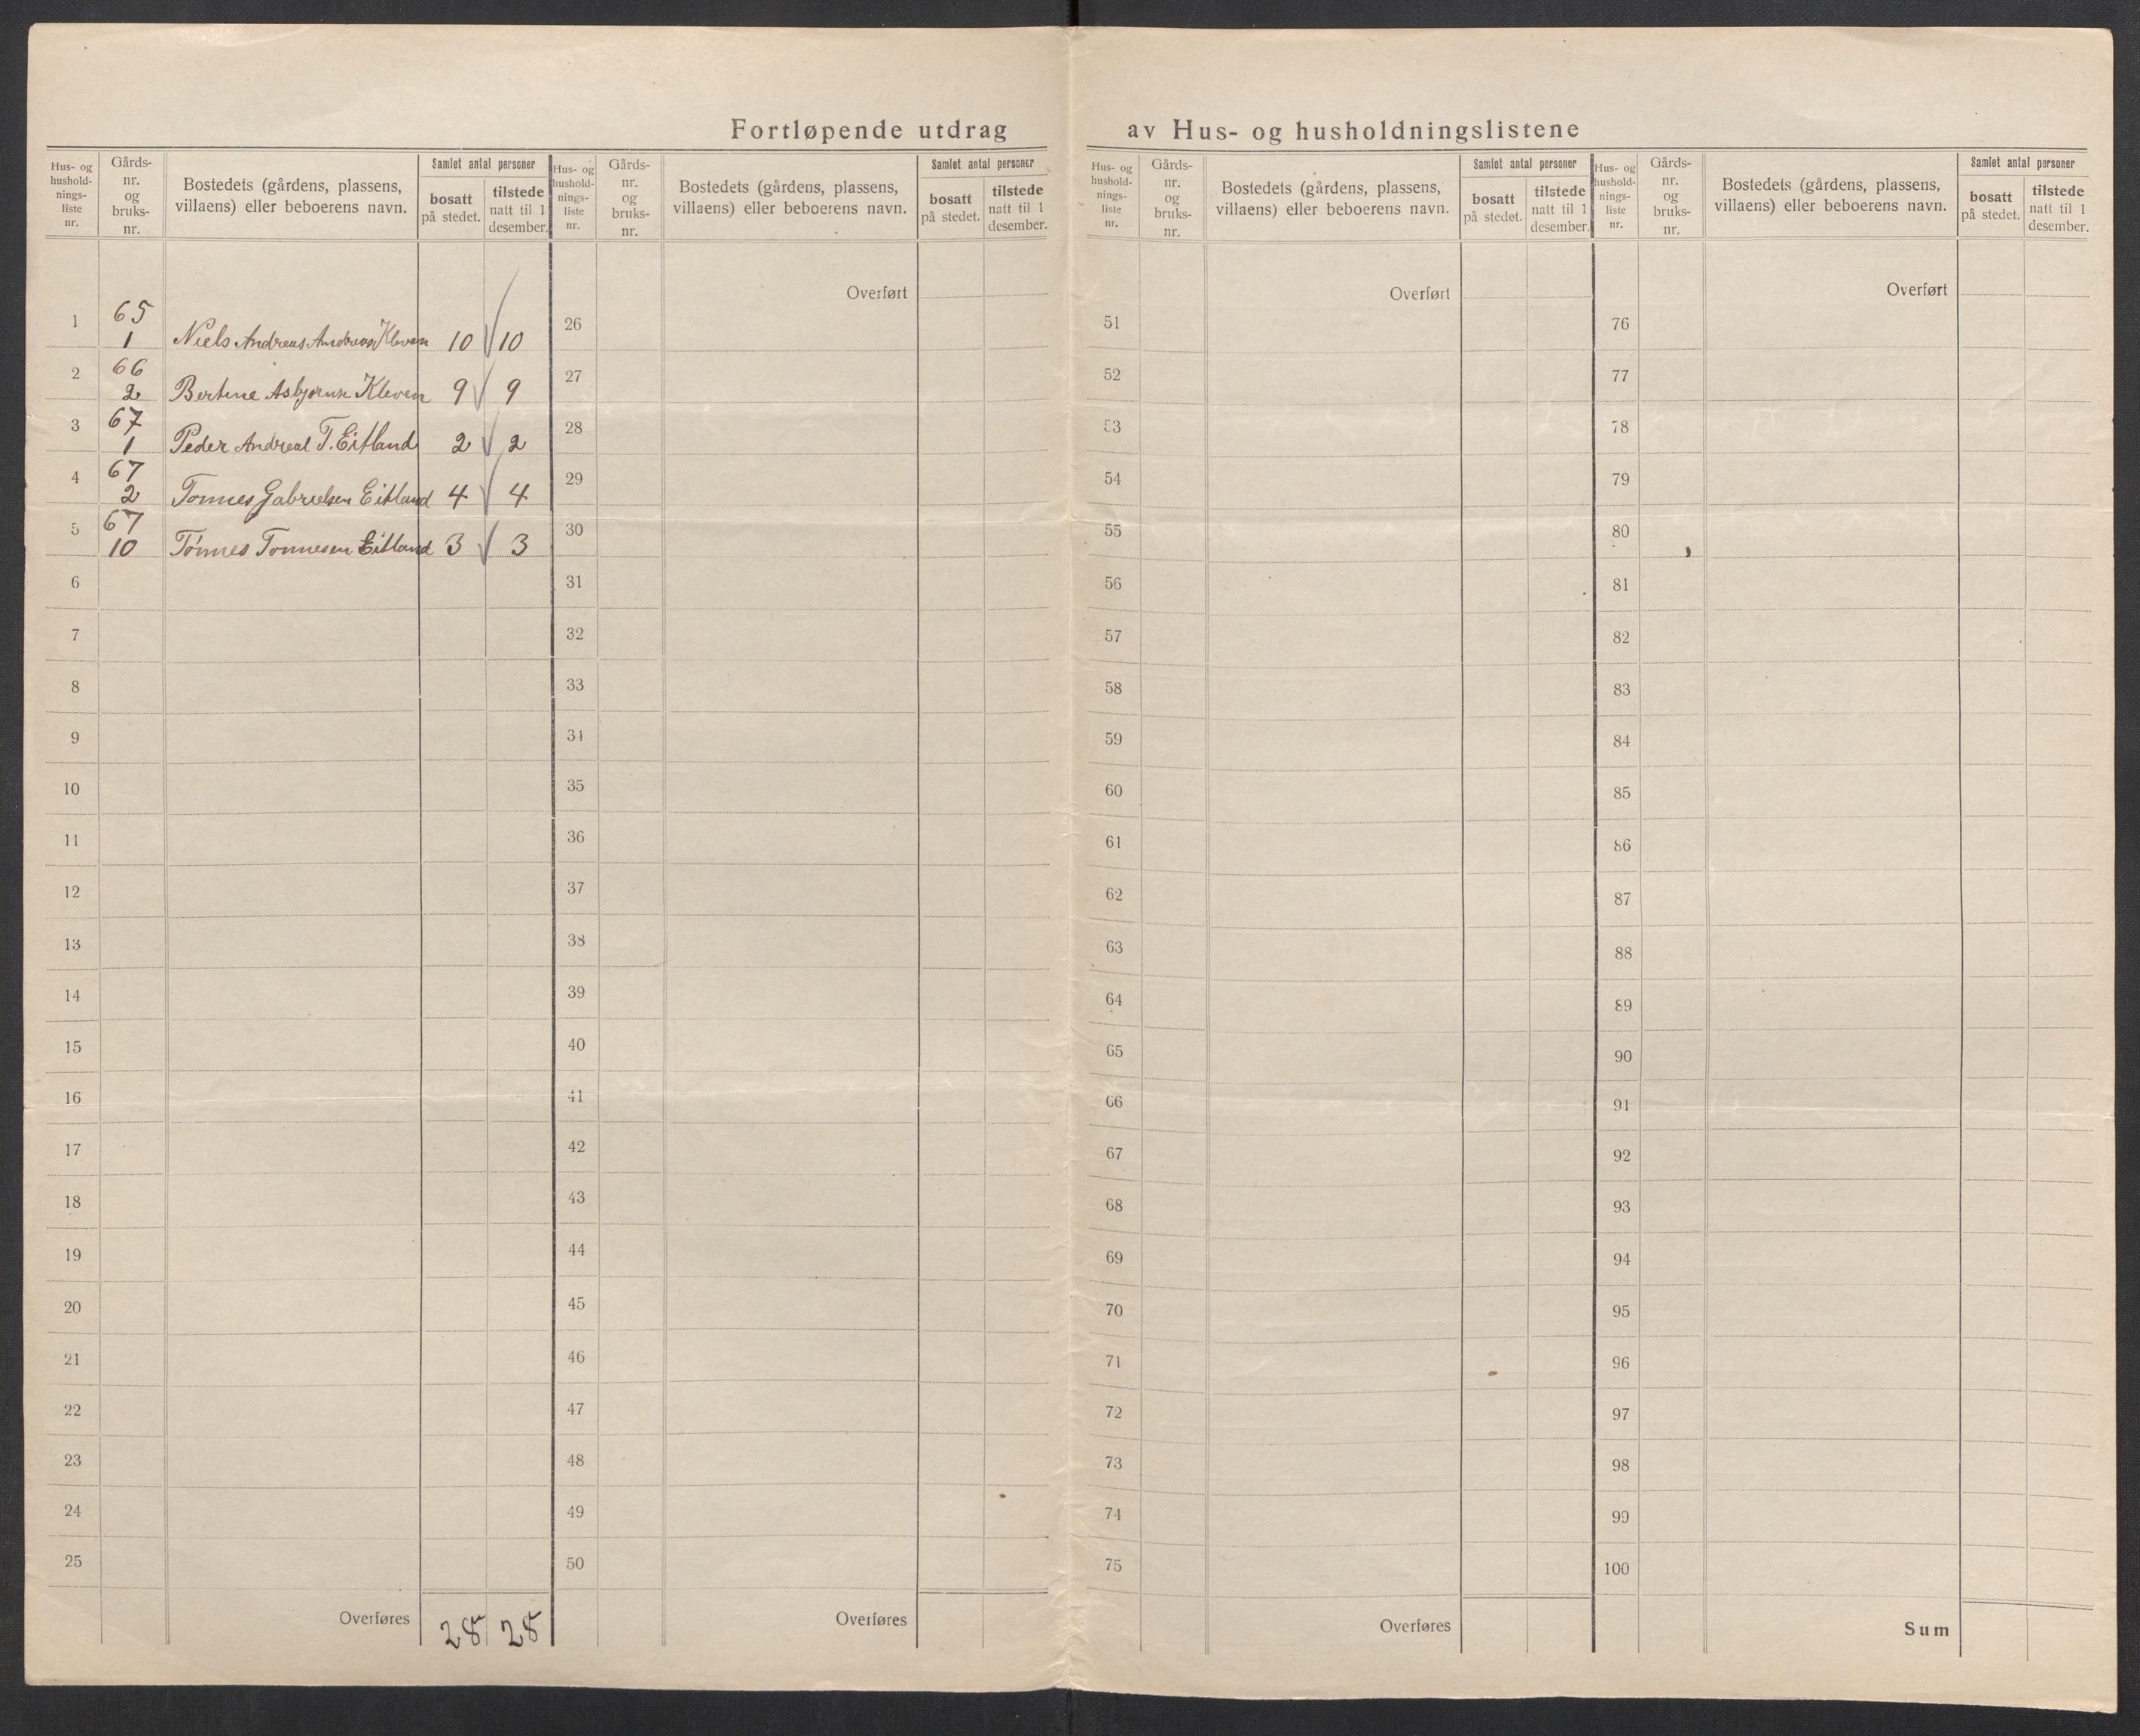 Fortløpende utdrag av Hus- og husholdningslistene
Hus- og
hushold-
nings-
liste
nr.
Gårds-
nr.
og
bruks-
nr.
Bostedets (gårdens, plassens,
villaens) eller beboerens navn.
Samlet antal personer
bosatt
på stedet.
tilstede
natt til 1
desember.
1
65
1
Niels Andreas Andreas Kleven 10 10
2
66
2
Bertine Asbjørns Kleven 9 9
3
67
1
Peder Andreas T. Eitland 2 2
4
67
2
Tonnes Gabrielsen Eitland 4 4
5
67
10
Tønnes Tonnesen Eitland 3 3
6
7
8
9
10
11
12
13
14
15
16
17
18
19
20
21
22
23
24
25
Overføres 28 28
Hus- og
hushold-
nings-
liste
nr.
Gårds-
nr.
og
bruks-
nr.
Bostedets (gårdens, plassens,
villaens) eller beboerens navn.
Samlet antal personer
bosatt
på stedet.
tilstede
natt til 1
desember.
Overført
26
27
28
29
30
31
32
33
34
35
36
37
38
39
40
41
42
43
44
45
46
47
48
49
50
Overføres
Hus- og
hushold-
nings-
liste
nr.
Gårds-
nr.
og
bruks-
nr.
Bostedets (gårdens, plassens,
villaens) eller beboerens navn.
Samlet antal personer
bosatt
på stedet.
tilstede
natt til 1
desember.
Overført
51
52
53
54
55
56
57
58
59
60
61
62
63
64
65
66
67
68
69
70
71
72
73
74
75
Overføres
Hus- og
hushold-
nings-
liste
nr.
Gårds-
nr.
og
bruks-
nr.
Bostedets (gårdens, plassens,
villaens) eller beboerens navn.
Samlet antal personer
bosatt
på stedet.
tilstede
natt til 1
desember.
Overført
76
77
78
79
80
81
82
83
84
85
86
87
88
89
90
91
92
93
94
95
96
97
98
99
100
Sum